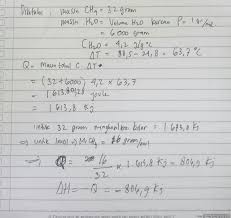 Diketahui : massa CH4 = 32 gram
massa H2O = Volume H2O karena ρ = 1 gr/mL
= 6000 gram
CH2O = 4,2 J/g°C
ΔT = 88,5 - 24,8 = 63,7 °C
Q = Massa total C. ΔT
= (32 + 6000) 4,2 x 63,7
= joule
= 1613,8 Kj
untuk 32 gram menghasilkan kalor = 1613,8 Kj
⇒ untuk 1 mol ⇒ Mr CH4 = 16 gram/mol
⇒ Q = 16/32 x 1613,8 Kj = 806,9 Kj
ΔH = - Q = - 806,9 Kj